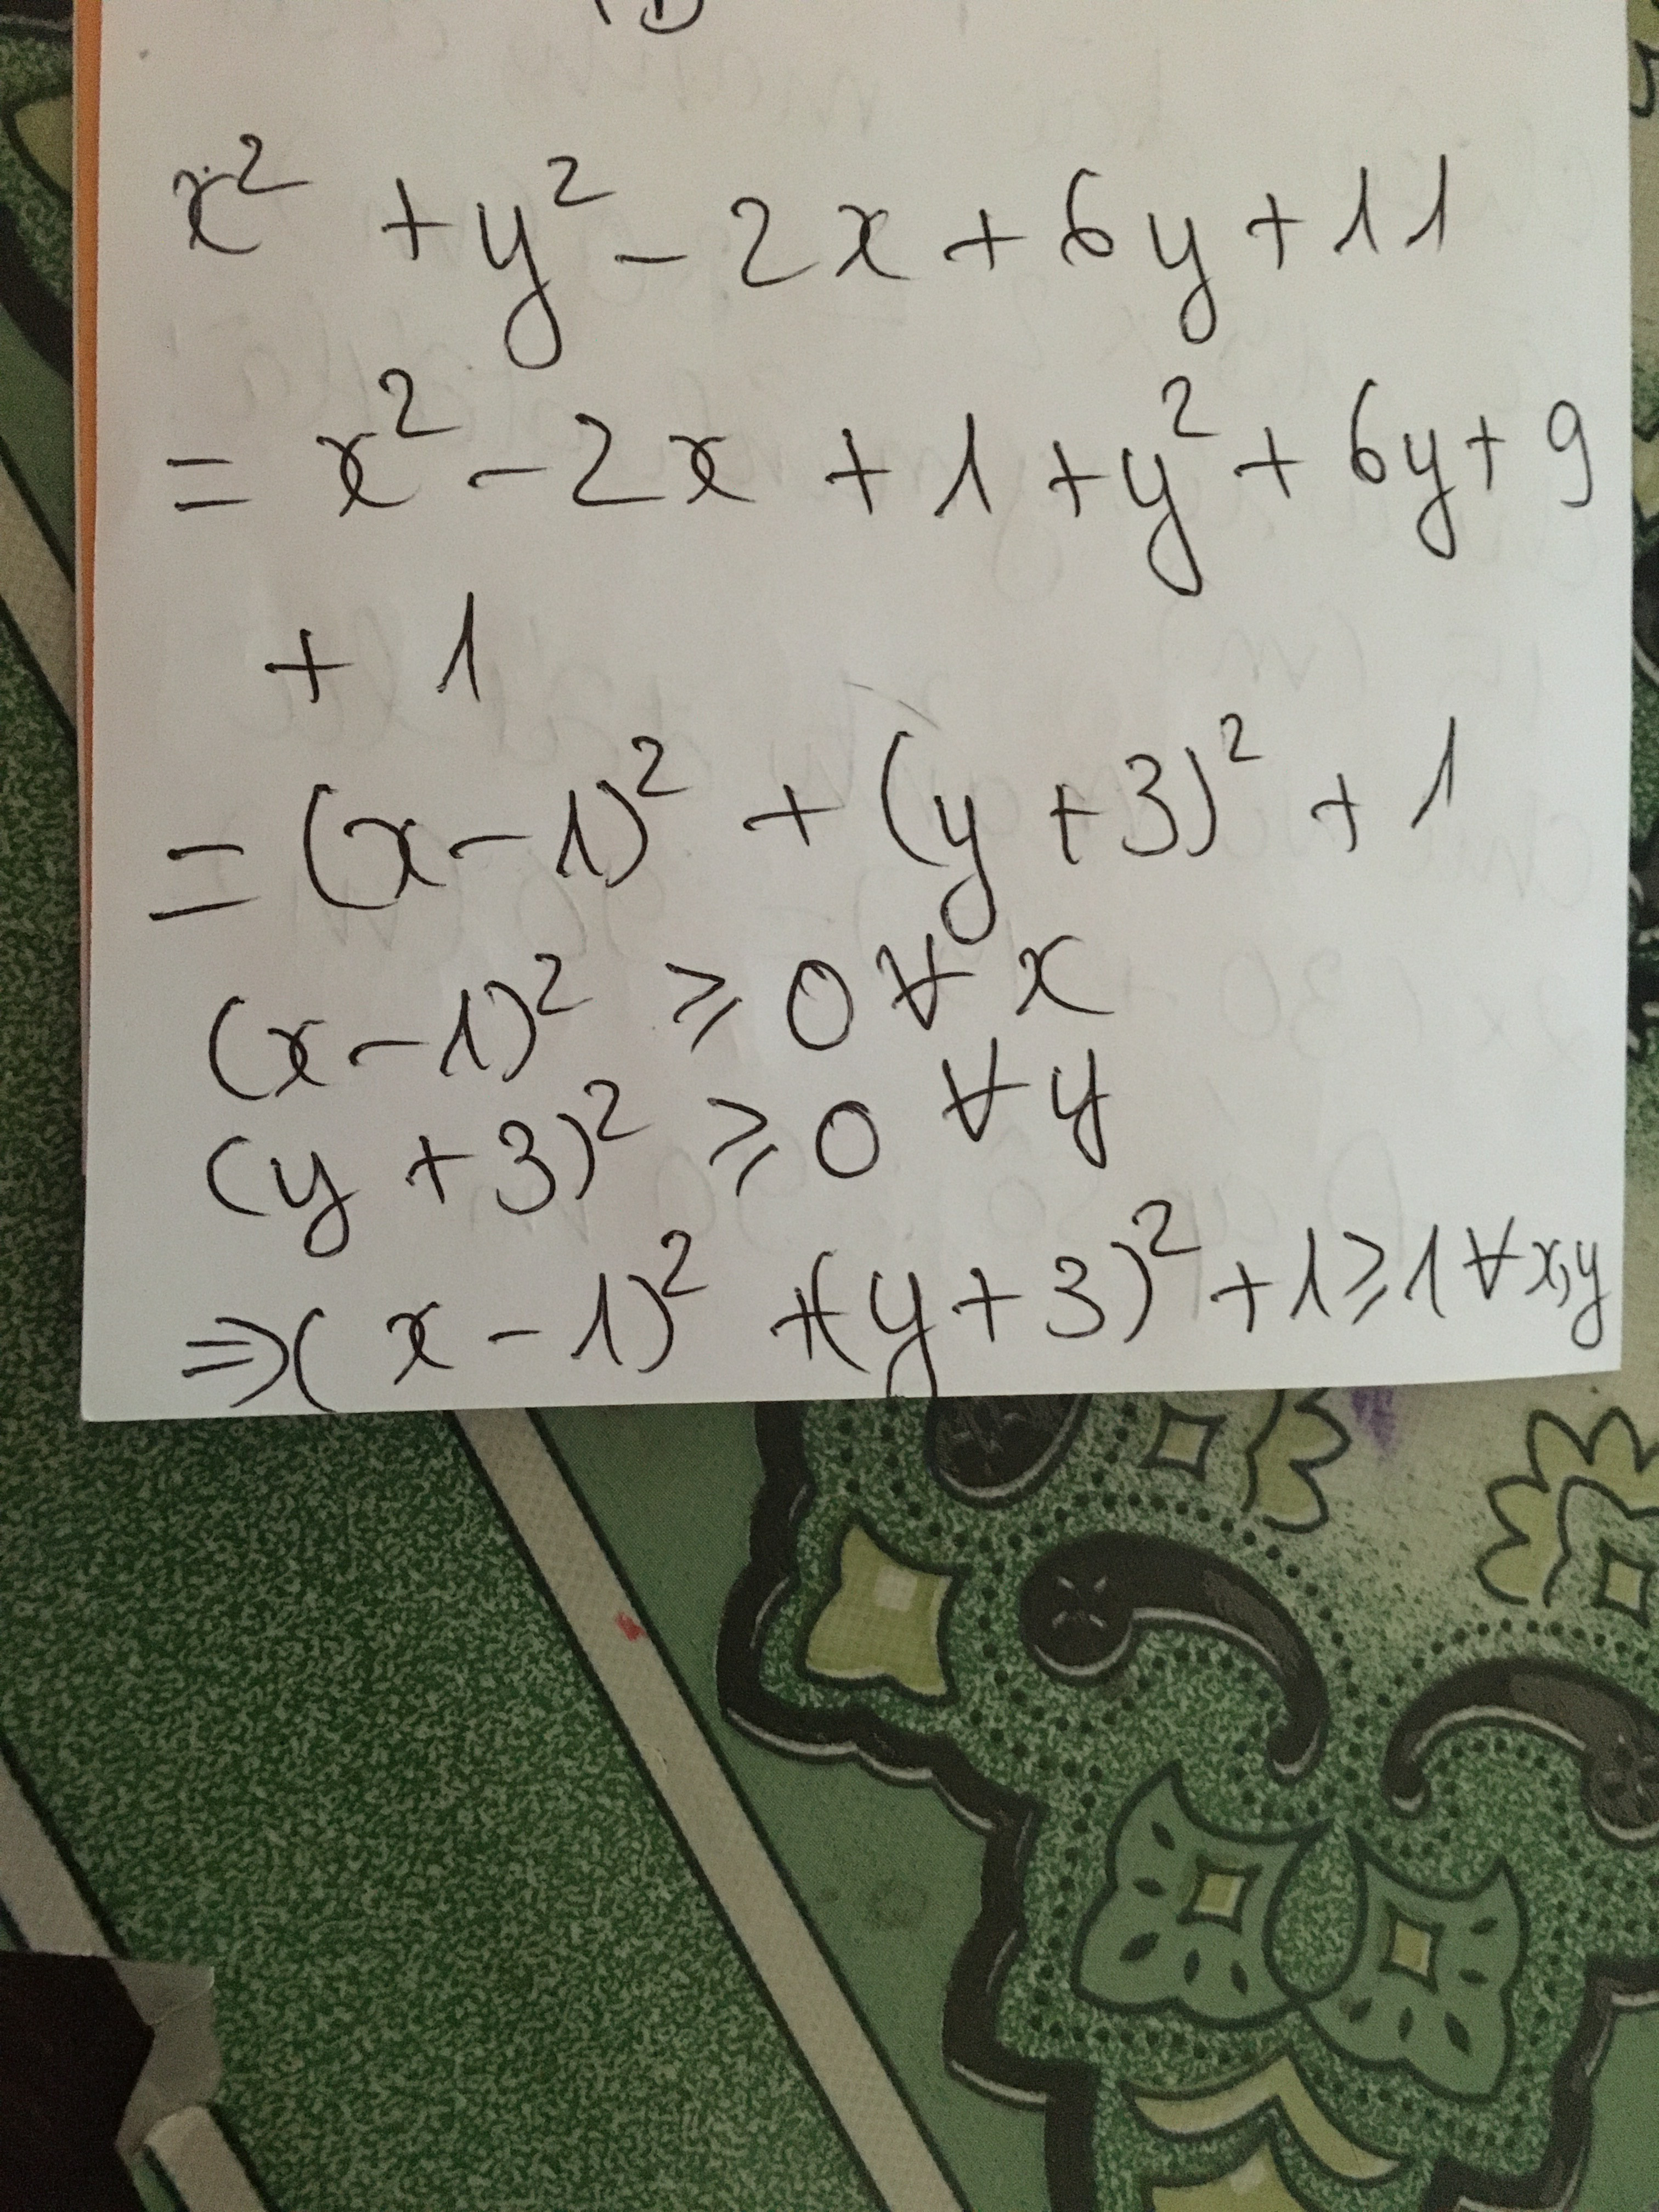 x² + y² - 2x + 6y + 11
= x² - 2x + 1 + y² + 6y + 9
+ 1
= (x - 1)² + (y + 3)² + 1
(x - 1)² ⩾ 0 ∀ x
(y + 3)² ⩾ 0 ∀ y
⇒ (x - 1)² + (y + 3)² + 1 ⩾ 1 ∀ x, y